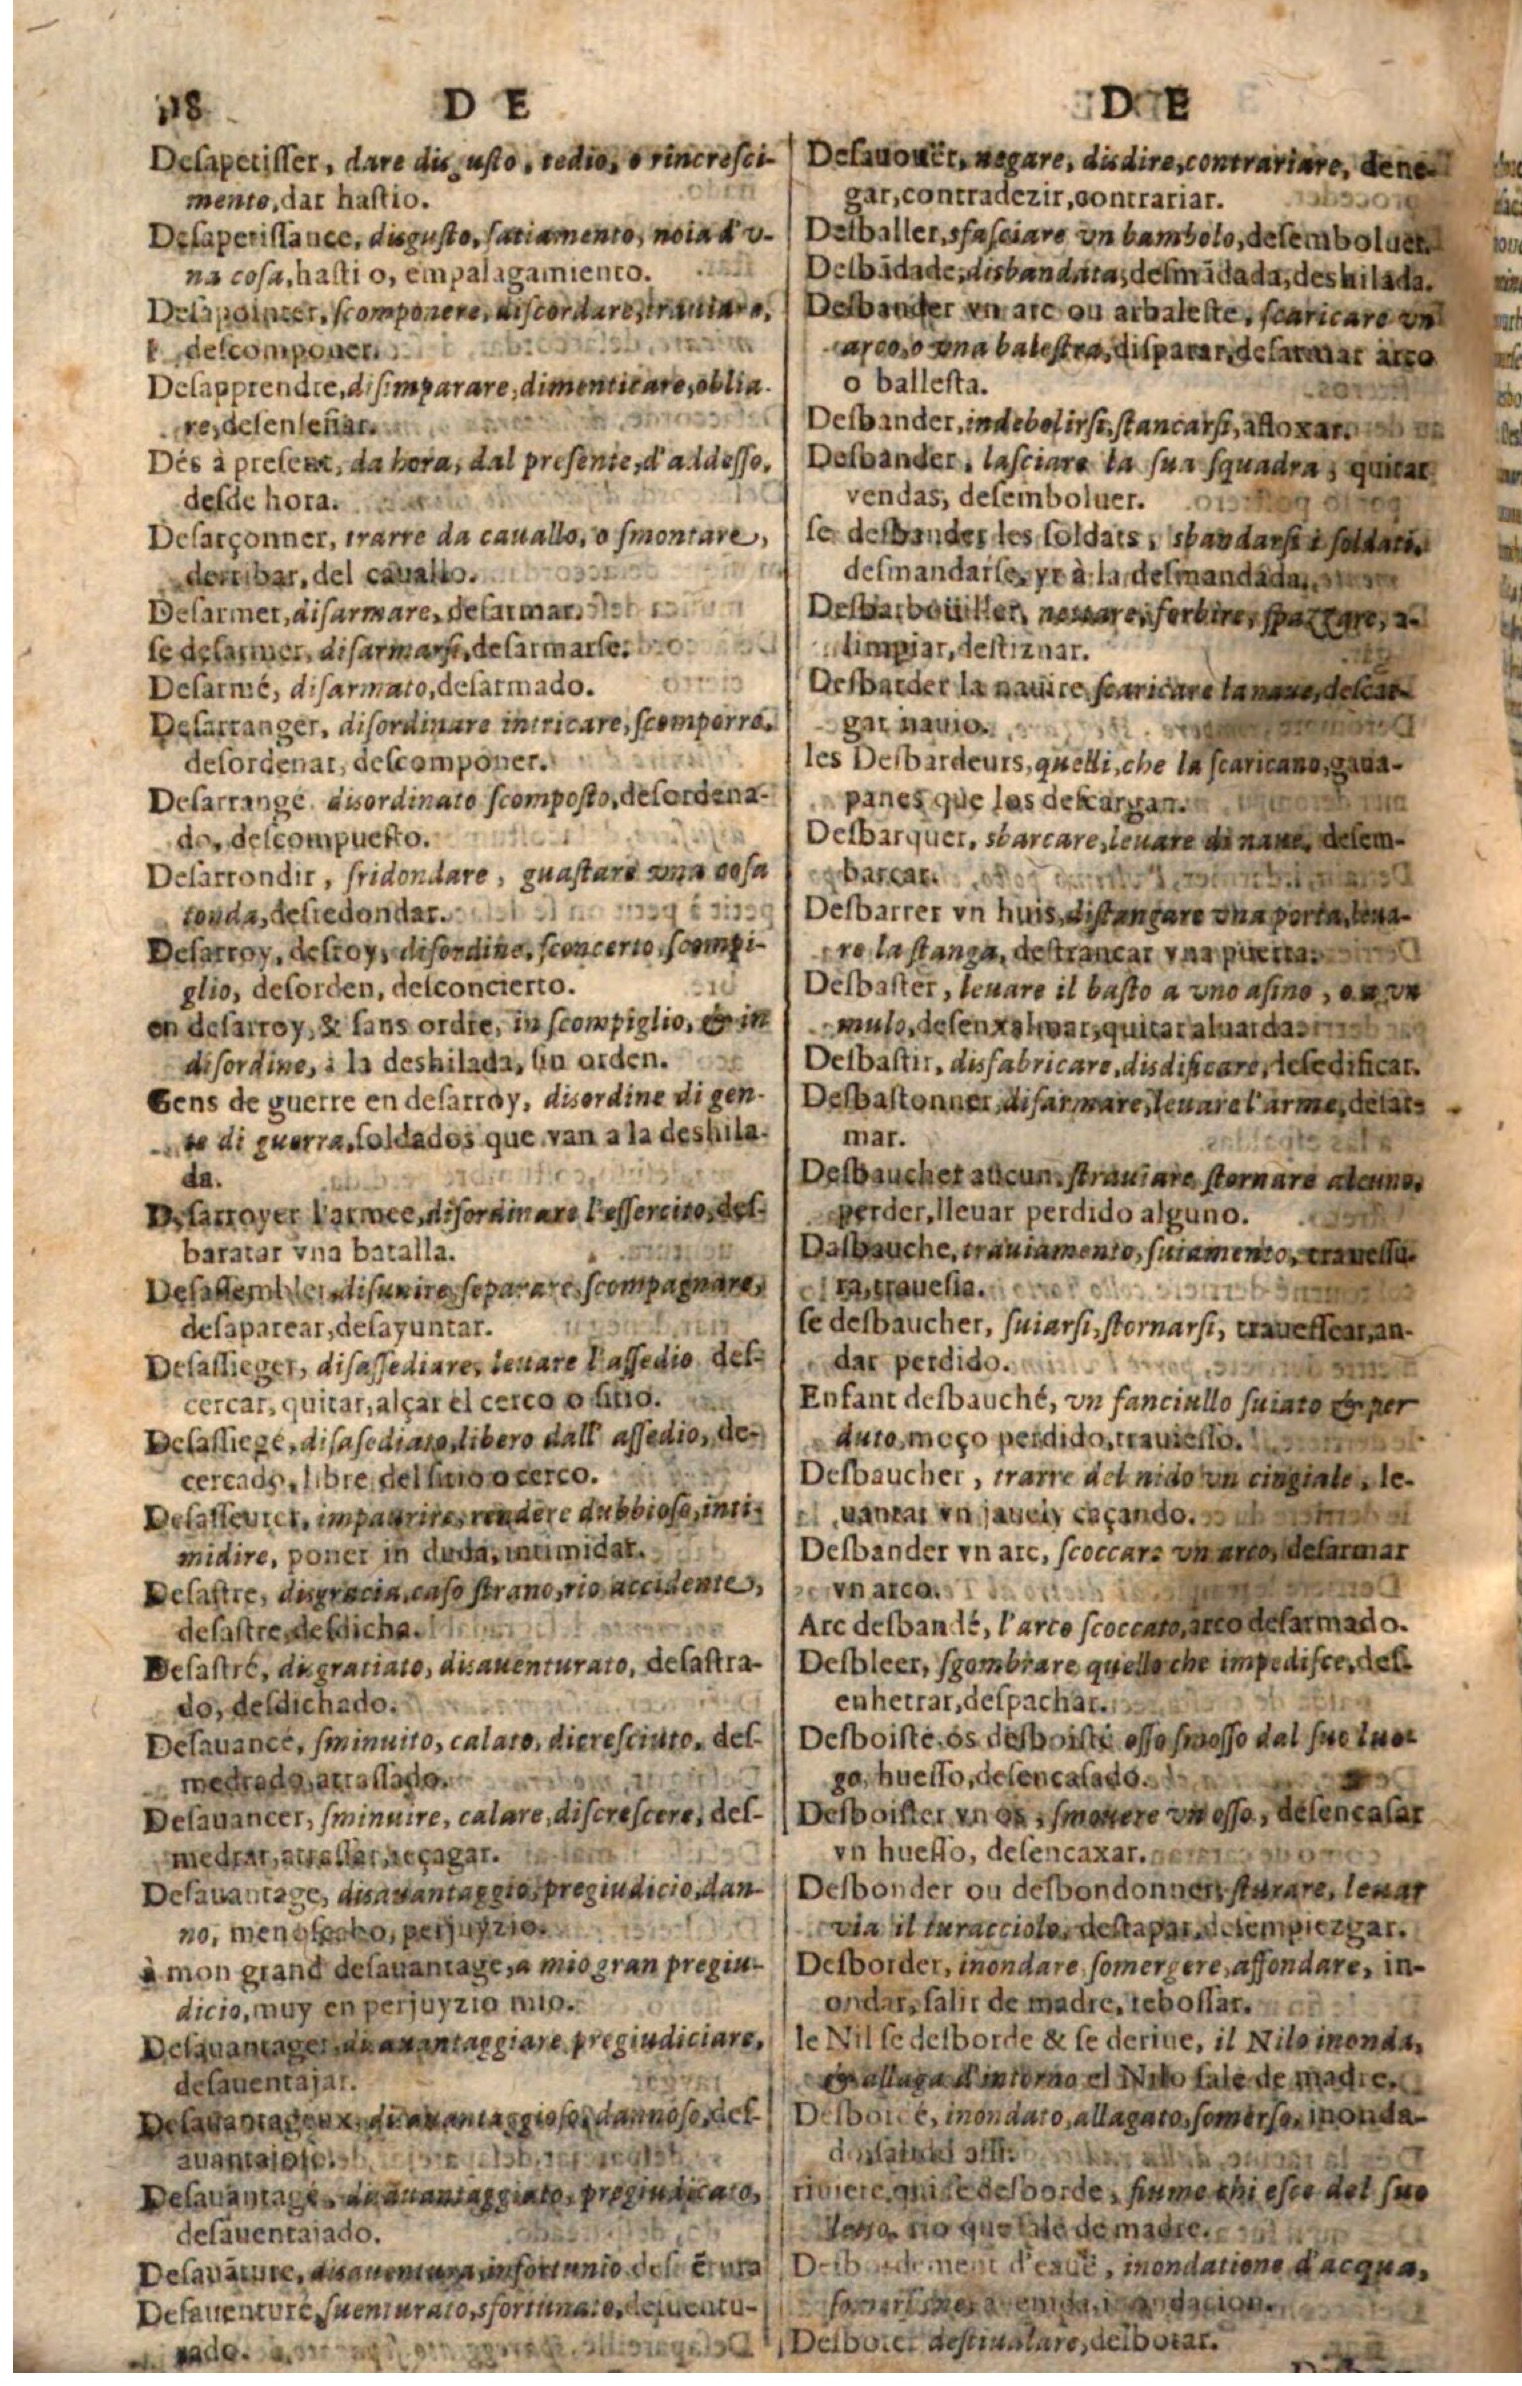 118 D E
Desapetisser, dare disgusto, tedio, o rincresci-
mento, dar hastio.
Desapetissance, disgusto, satiamento, noia d'v-
na cosa, hastio, empalagamiento.
Desapointer, scomponere, discordare, trauiare,
descomponer.
Desapprendre, disimparare, dimenticare, oblia-
re, desenseñar.
Dés à present, da hora, dal presente, d'addesso,
desde hora.
Desarçonner, trarre da cauallo, o smontare,
derribar, del cauallo.
Desarmer, disarmare, desarmar.
se desarmer, disarmarsi, desarmarse.
Desarmé, disarmato, desarmado.
Desarranger, disordinare intricare, scomporre,
desordenar, descomponer.
Desarrangé disordinato scomposto, desordena-
do, descompuesto.
Desarrondir, sridondare, guastare vna cosa
tonda, desredondar.
Desarroy, desroy, disordine, sconcerto, scompi-
glio, desorden, desconcierto.
en desarroy, & sans ordre, in scompiglio, & in
disordine, à la deshilada, sin orden.
Gens de guerre en desarroy, disordine di gen-
te di guerra, soldados que van a la deshila-
da.
Desarroyer l'armee, disordinare l'essercito, des-
baratar vna batalla.
Desassembler, disunire, separare, scompagnare,
desaparear, desayuntar.
Desassieger, disassediare, leuare l'assedio des-
cercar, quitar, alçar el cerco o sitio.
Desassiegé, disasediato, libero dall' assedio, de-
cercado, libre del sitio o cerco.
Desasseurer, impaurire, rendere dubbioso, inti-
midire, poner in duda, intimidar.
Desastre, disgracia, caso strano, rio accidente,
desastre, desdicha.
Desastré, disgratiato, disauenturato, desastra-
do, desdichado.
Desauancé, sminuito, calato, dicresciuto, des-
medrado, atrassado.
Desauancer, sminuire, calare, discrescere, des-
medrar, atrassar, reçagar.
Desauantage, disauantaggio, pregiudicio, dan-
no, menoscabo, perjuyzio.
à mon grand desauantage, a mio gran pregiu-
dicio, muy en perjuyzio mio.
Desauantager, disauantaggiare, pregiudiciare,
desauentajar.
Desauantageux, disauantaggioso, dannoso, des-
auantajoso.
Desauantagé, disauantaggiato, pregiudicato,
desauentajado.
Desauãture, disauentura, infortunio
Desauenturé, suenturato, sfortunato, desuentu-
rado.
D E
Desauouër, negare, disdire, contrariare, dene-
gar, contradezir, contrariar.
Desballer, sfasciare vn bambolo, desemboluer.
Desbãdade, disbandata, desmãdada, deshilada.
Desbander vn arc ou arbaleste, scaricare vn
arco, o vna balestra, disparar, desarmar arco
o ballesta.
Desbander, indebolirsi, stancarsi, afloxar.
Desbander, lasciare la sua squadra, quitar
vendas, desemboluer.
se desbander les soldats, sbandarsi i soldati,
desmandarse, yr à la desmandada.
Desbarboüiller, nettare, forbire, spazzare, a-
limpiar, destiznar.
Desbarder la nauire, scaricare la naue, descar-
gar nauio.
les Desbardeurs, quelli, che la scaricano, gana-
panes que las descargan.
Desbarquer, sbarcare, leuare di naue, desem-
barcar.
Desbarrer vn huis, distangare vna porta, leua-
re la stanga, destrancar vna puerta.
Desbaster, leuare il basto a vno asino, o a vn
mulo, desenxalmar, quitar aluarda.
Desbastir, disfabricare, disdificare, desedificar.
Desbastonner, disarmare, leuare l'arme, desar-
mar.
Desbaucher aucun, strauiare, stornare alcuno,
perder, lleuar perdido alguno.
Dasbauche, trauiamento, suiamento, trauessu-
ra, trauesia.
se desbaucher, suiarsi, stornarsi, trauessear, an-
dar perdido.
Enfant desbauché, vn fanciullo suiato & per
duto, moço perdido, trauiesso.
Desbaucher, trarre del nido vn cingiale, le-
uantar vn jauely caçando.
Desbander vn arc, scoccare vn arco, desarmar
vn arco.
Arc desbandé, l'arco scoccato, arco desarmado.
Desbleer, sgombrare quello che impedisce, des-
enhetrar, despachar.
Desboisté, os desboisté osso smosso dal suo luo-
go, huesso, desencasado.
Desboister vn os, smouere vn osso, desencasar
vn huesso, desencaxar.
Desbonder ou desbondonner, sturare, leuar
via il turacciolo, destapar, desempiezgar.
Desborder, inondare somergere, affondare, in-
ondar, salir de madre, rebossar.
le Nil se desborde & se deriue, il Nilo inonda,
& allaga d'intorno el Nilo sale de madre.
Desbordé, inondato, allagato, somerso, inonda-
riuiere, qui se desborde, fiume chi esce del suo
letto, rio que sale de madre.
Desbordement d'eauë, inondatione d'acqua,
Desboter destiualare, desbotar.